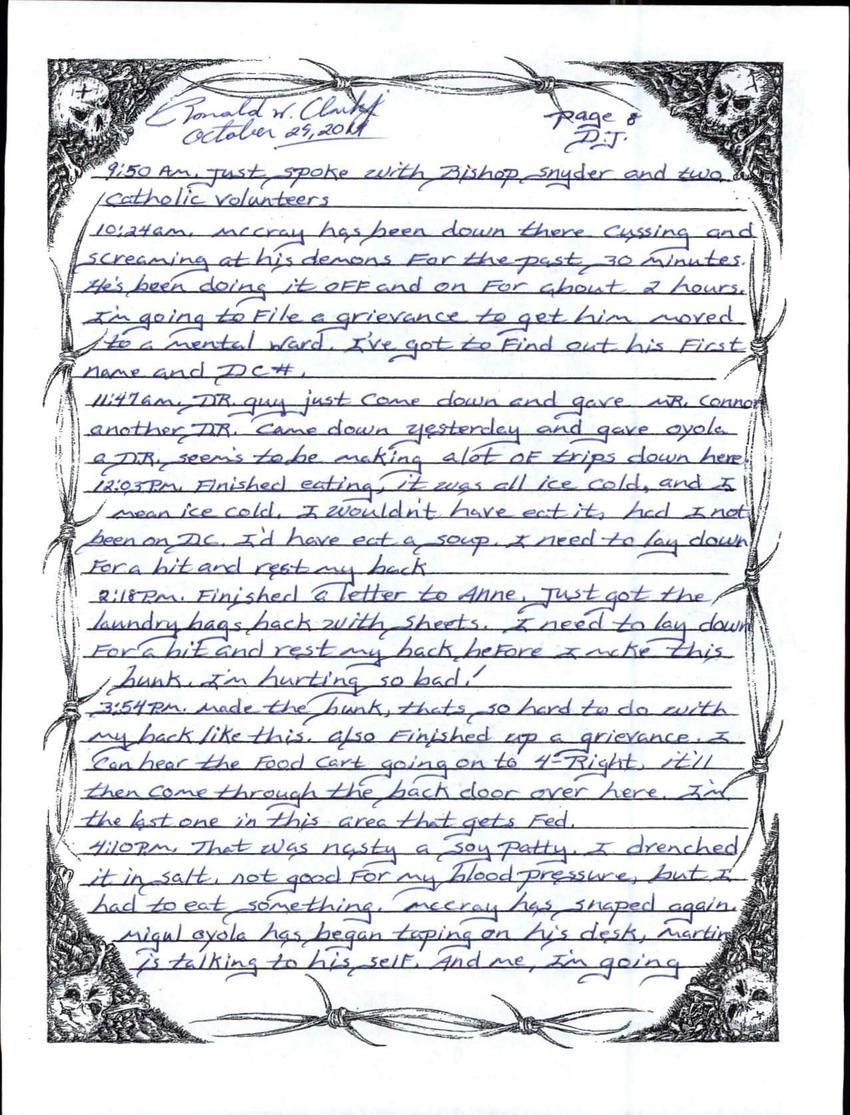 Ronald W. Clark Jr
October 29, 2014
page 8
D.J.
9:50 Am. Just spoke with Bishop Snyder and two
Catholic volunteers
10:24am. Mccray has been down there cussing and
screaming at his demons For the past 30 minutes.
He's been doing it OFF and on For about 2 hours.
I'm going to File a grievance to get him moved
to a mental ward. I've got to Find out his First
name and DC#.
11:47am. DR. guy just come down and gave MR. Connor
another DR. Came down yesterday and gave oyola
a DR. seem's to be making alot oF trips down here.
12:03Pm. Finished eating, it was all ice cold, and I
mean ice cold. I wouldn't have eat it, had I not
been on DC. I'd have eat a soup. I need to lay down
For a bit and rest my back
2:18Pm. Finished a letter to Anne. Just got the
laundry bags back with sheets. I need to lay down
For a bit and rest my back beFore I make this
bunk. I'm hurting so bad!
3:54Pm. Made the bunk, thats so hard to do with
my back like this. Also Finished up a grievance. I
Can hear the Food Cart going on to 4-Right, it'll
then come through the back door over here. I'm
the last one in this area that gets Fed.
4:10Pm. That was nasty a soy patty. I drenched
it in salt, not good For my blood pressure, but I
had to eat something. Mccray has snaped again.
Migul oyola has began taping on his desk, Martin
is talking to his self. And me, I'm going